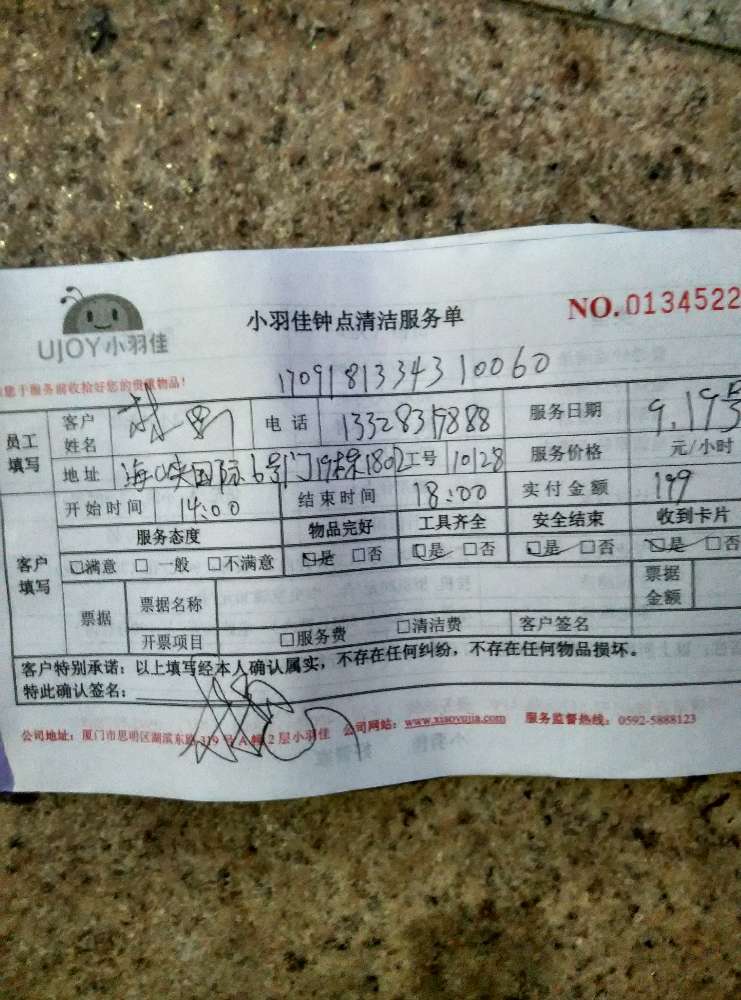 UJOY小羽佳
小羽佳钟点清洁服务单
NO.0134522
您于服务前收拾好您的贵重物品!
1709181334310060
员工填写 客户姓名 林 电话 服务日期 9.19
地址 海峡国际6号门19栋1802 工号 10128 服务价格 元/小时
客户填写 开始时间 14:00 结束时间 18:00 实付金额 199
服务态度 物品完好 工具齐全 安全结束 收到卡片
□满意 □一般 □不满意 □是 □否 □是 □否 □是 □否 □是 □否
票据 票据名称 票据金额
开票项目 □服务费 □清洁费 客户签名
客户特别承诺:以上填写经本人确认属实,不存在任何纠纷,不存在任何物品损坏。
特此确认签名:
公司地址:厦门市思明区湖滨东路319号A幢2层小羽佳 公司网站:www.xiaoyujia.com 服务监督热线:0592-5888123